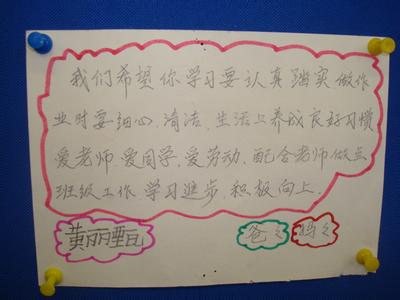 我们希望你学习要认真踏实做作
业时要细心.清洁.生活上养成良好习惯
爱老师.爱同学.爱劳动.配合老师做点
班级工作.学习进步.积极向上.
黄丽
爸爸 妈妈